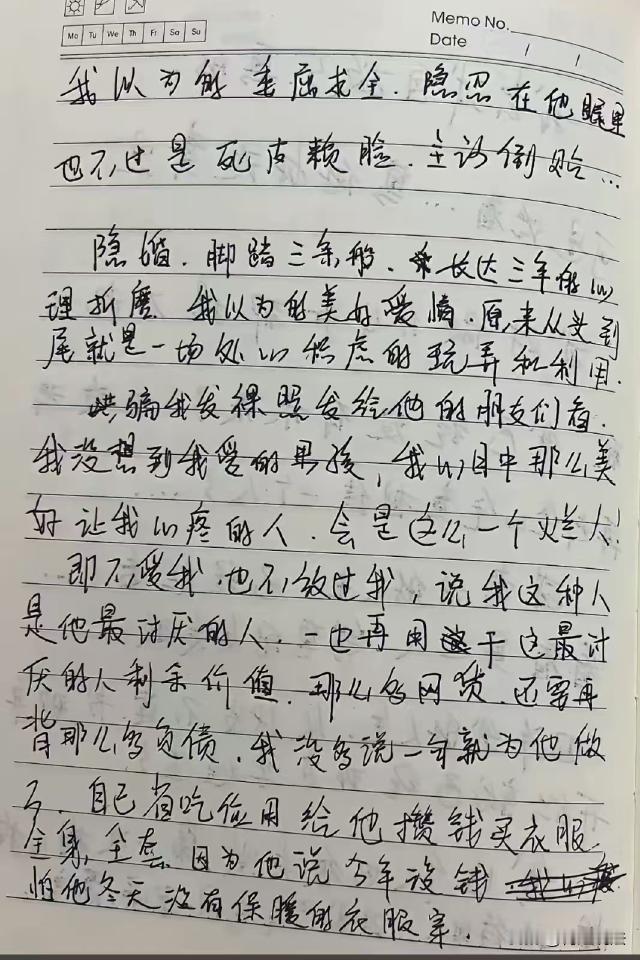 Memo No.
Mo Tu We Th Fr Sa Su
Date / /
我以为的委屈求全.隐忍在他眼里
也不过是死皮赖脸.主动倒贴...
隐婚.脚踏三条船.长达三年的心
理折磨 我以为的美好爱情.原来从头到
尾就是一场处心积虑的玩弄和利用.
骗我发裸照发给他的朋友们看.
我没想到我爱的男孩,我心目中那么美
好让我心疼的人.会是这么一个烂人!
即不爱我.也不放过我,说我这种人
是他最讨厌的人.一也再用于这最讨
厌的人剩余价值.那么多网货.还要再
背那么多负债.我没多说一句就为他做
了.自己省吃俭用给他攒钱买衣服.
全身,全套 因为他说今年没钱
怕他冬天没有保暖的衣服穿.